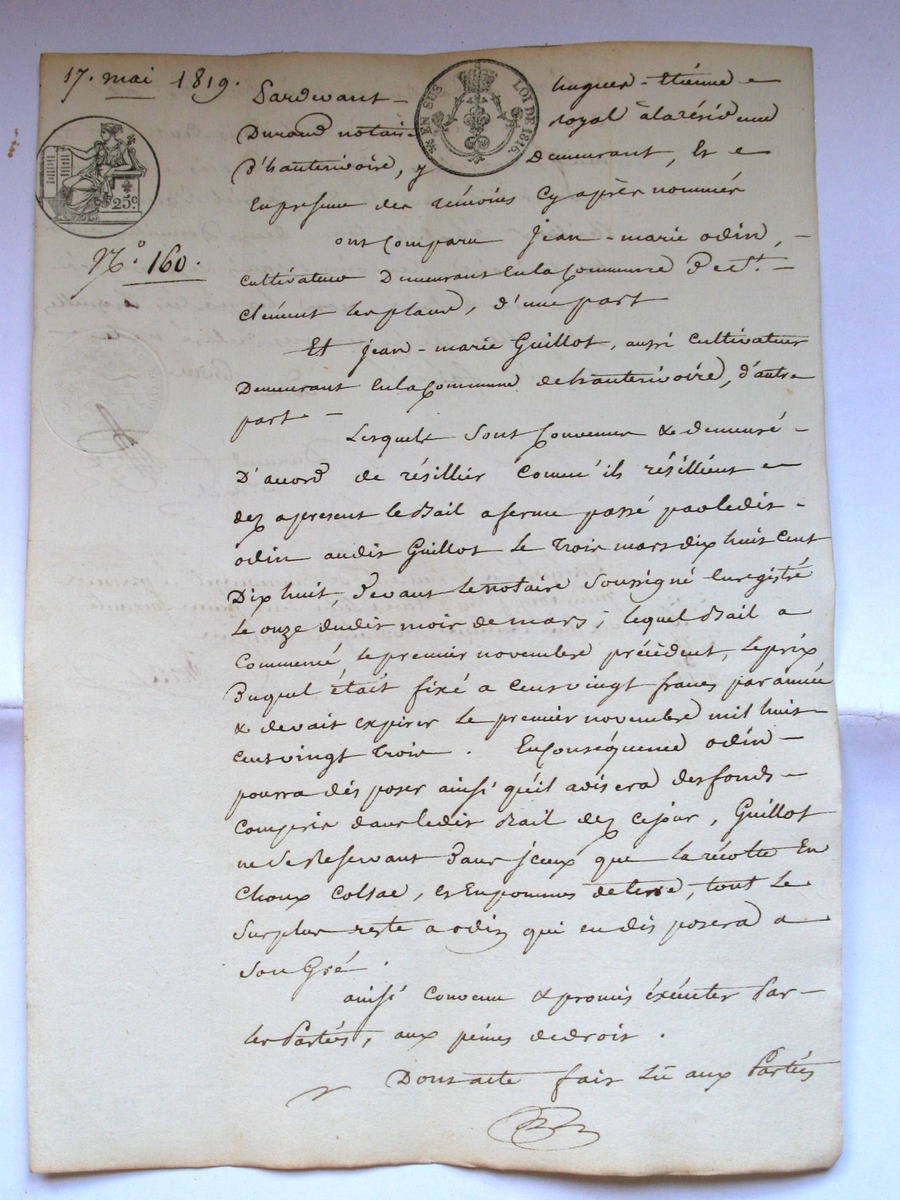 17. mai 1819.
25c
N.o 160.
⅖ EN SUS LOI DE 1816
Pardevant hugues-Etienne
Durand notaire royal à la résidence
D'hauterivoire, y demeurant, Et
En presence des témoins cy après nommés
ont comparu Jean-marie odin,
cultivateur Demeurant En la Commune De St.
Clément les places, d'une part
Et Jean-marie Guillot, aussi cultivateur
Demeurant En la Commune de hauterivoire, d'autre
part
Lesquels sont Convenus & demeuré
D'accord de résillier comm'ils résillient
dez apresent le Bail a ferme passé par ledit
odin audit Guillot le Trois mars dix huit cent
Dix huit, Devant le notaire soussigné Enregistré
le onze dudit mois de mars; lequel Bail a
Commencé le premier novembre précédent, le prix
Duquel était fixé a Cent vingt francs par année
& devait expirer le premier novembre mil huit
Cent vingt Trois. En Conséquence odin
pourra dis poser ainsi qu'il avisera des fonds
Compris dans ledit Bail dez ce jour, Guillot
ne se Reservant Dans iceux que la récolte En
Choux Colsac, et En pommes de terre, tout le
Surplus reste a odin qui en dis posera a
Son Gré.
ainsi convenu & promis éxécuter Par
les Parties, aux peines de droit.
Dont acte fait Lu aux Parties